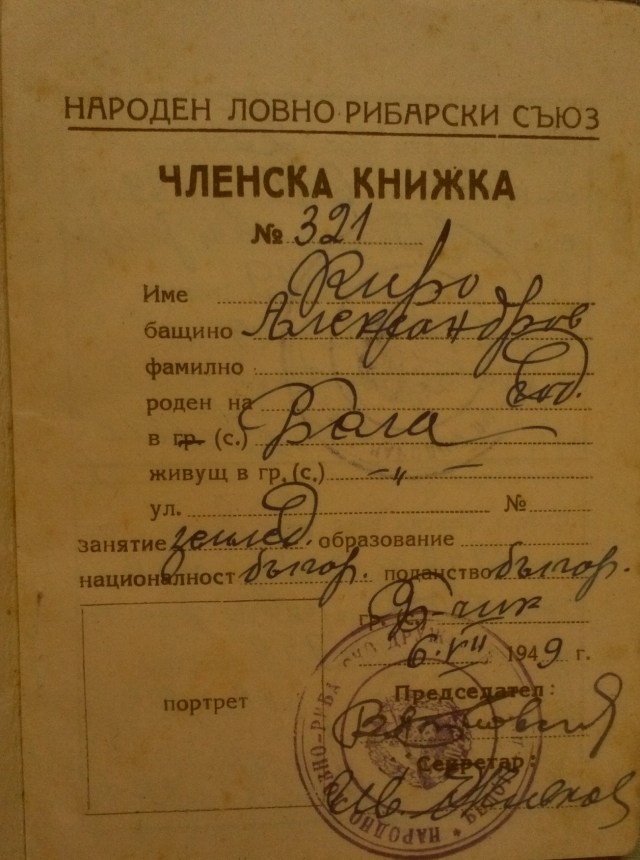 НАРОДЕН ЛОВНО-РИБАРСКИ СЪЮЗ
ЧЛЕНСКА КНИЖКА
№ 321
Име Киро
бащино Александров
фамилно
роден на год.
в гр. (с.) Бага
живущ в гр. (с.) -„-
ул. №
занятие землед. образование
националност българ. поданство българ.
гр. (с.)
6.VII 1949 г.
Председател:
портрет
Секретар: